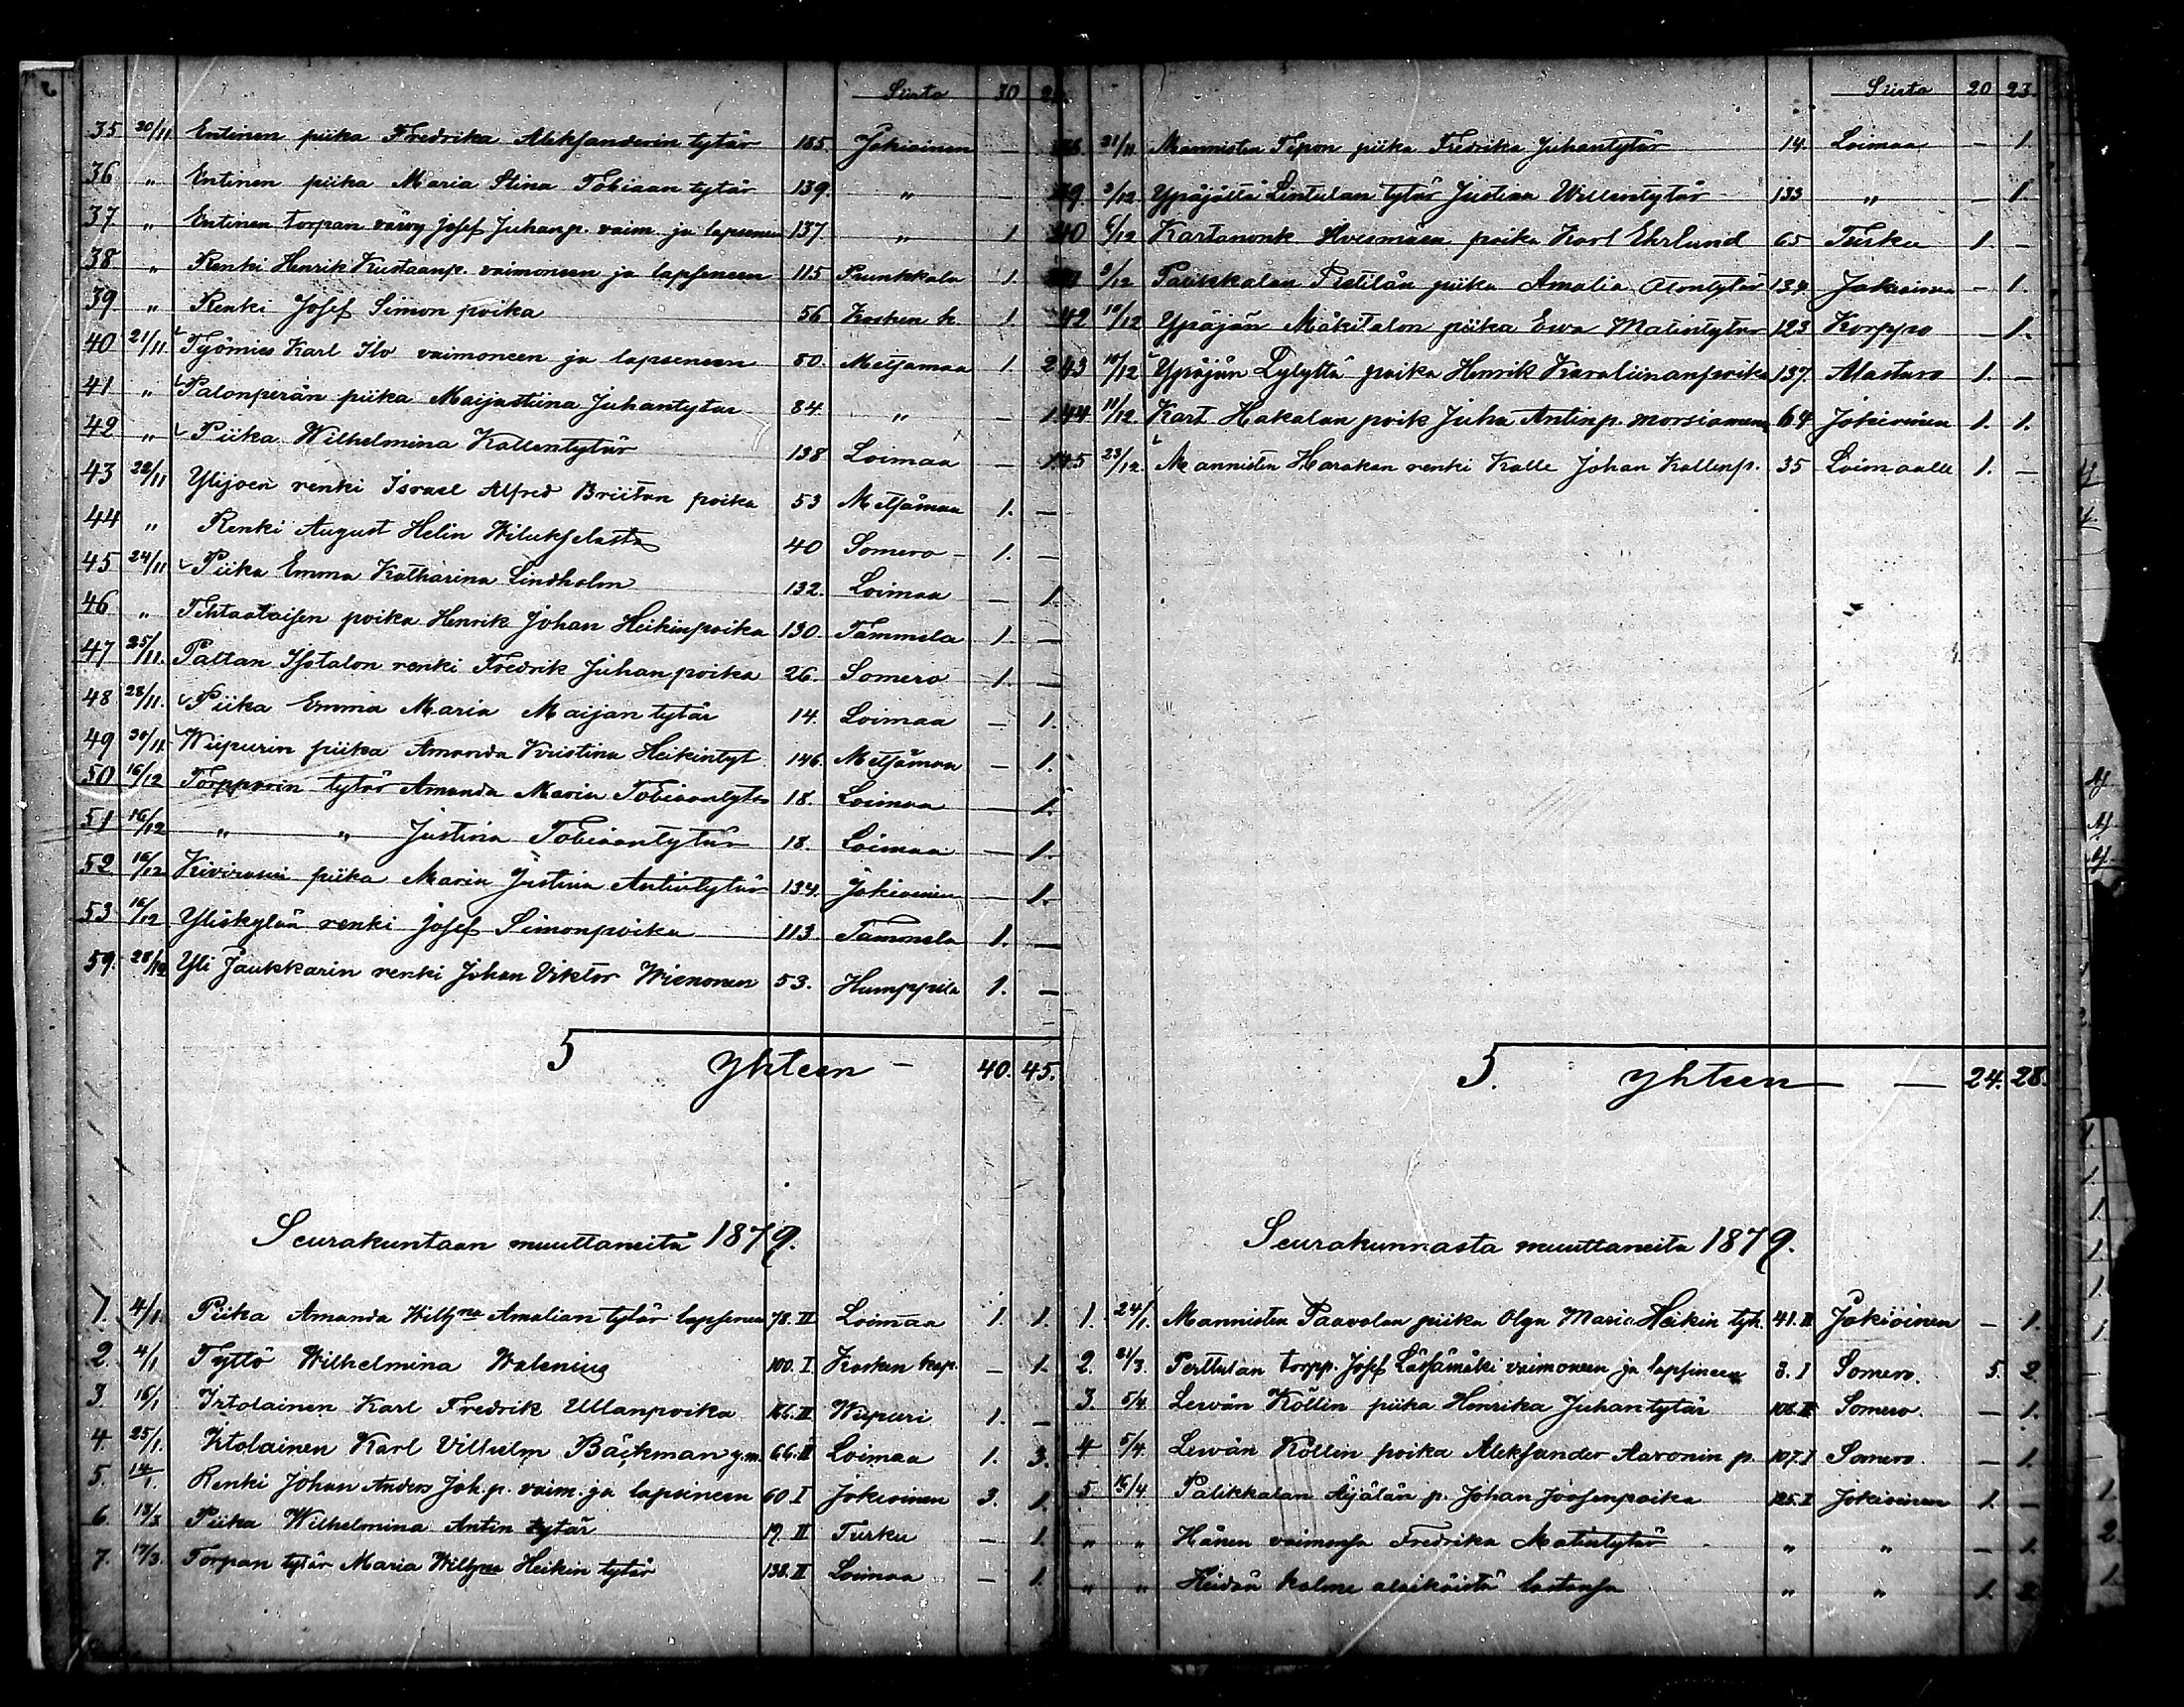 Siirto 30
35 20/11 Entinen piika Fredrika Aleksanderin tytär 185 Jokioinen —
36 „ Entinen piika Maria Stina Tobiaan tytär 139. „ —
37. „ Entinen torpan vävy Josef Juhanp. vaim. ja lapsenen 137 „ 1
38. „ Renki Henrik Kustaanp. vaimoneen ja lapseneen 115 Prunkkala 1.
39. „ Renki Josef Simon poika 56 Kosken k. 1.
40 21/11 Työmies Karl Ilo vaimoneen ja lapseneen 80. Metsämaa 1. 2
41 „ Palonperän piika Maijastiina Juhantytär 84. „ — 1.
42 „ Piika Wilhelmina Kallentytär 138 Loimaa — 1.
43 22/11 Ylijoen renki Israel Alfred Briitan poika 53 Metsämaa 1. —
44 „ Renki August Helin Wilukselasta 40 Somero 1. —
45 24/11 Piika Emma Katharina Lindholm 132. Loimaa — 1.
46 „ Tehtaalaisen poika Henrik Johan Heikinpoika 130. Tammela 1. —
47 25/11. Paltan Isotalon renki Fredrik Juhanpoika 26. Somero 1. —
48 28/11. Piika Emma Maria Maijan tytär 14. Loimaa — 1.
49 30/11. Wiipurin piika Amanda Kristina Heikintyt. 146. Metsämaa — 1.
50 16/12 Torpparin tytär Amanda Maria Tobiaantytär 18. Loimaa — 1.
51 16/12 „ „ Justina Tobiaantytär 18. Loimaa — 1.
52 16/12 Kivirasin piika Maria Justina Antintytär 134. Jokioinen — 1.
53 16/12 Yliskylän renki Josef Simonpoika 113. Tammela 1. —
59. 28/12 Yli Jaukkarin renki Johan Viktor Wienonen 53. Humppila 1. —
5 Yhteen — 40. 45.
Seurakuntaan muuttaneita 1879.
1. 4/1 Piika Amanda Wilhna Amalian tytär lapsenen 78. II Loimaa 1. 1.
2. 4/1 Tyttö Wilhelmina Walenius 100. I Kosken kap. — 1.
3. 16/1 Irtolainen Karl Fredrik Ullanpoika 166. II Wiipuri 1. —
4. 25/1. Irtolainen Karl Vilhelm Bäckman y.m. 66. II Loimaa 1. 3.
5. 14/1. Renki Johan Anders Joh.p. vaim. ja lapsineen 60 I Jokioinen 3. 1.
6. 13/3 Piika Wilhelmina Antin tytär 19. II Turku — 1.
7. 17/3. Torpan tytär Maria Wilhna Heikin tytär 138. II Loimaa — 1.
Siirto 20 23.
21/11 Mannisten Tepon piika Fredrika Juhantytär 14. Loimaa — 1.
3/12 Ypäjältä Lintulan tytär Justina Willentytär 133 „ — 1.
40 6/12 Kartanonk. poika Karl Ehrlund 65 Turku 1. —
9/12 Palikkalan Pietilän piika Amalia Otontytär 134. Jokioinen — 1.
42 10/12 Ypäjän Mäkitalon piika Ewa Matintytär 123 Korppo — 1.
43 10/12 Ypäjän Lylyttä poika Henrik Karoliinanpoika 137. Alastaro 1. —
44 11/12 Kart. Hakalan poik Juha Antinp. morsiamen 64 Jokioinen 1. 1.
45 23/12. Mannisten Harakan renki Kalle Johan Kallenp. 35 Loimaalle 1. —
5. Yhteen — 24. 28.
Seurakunnasta muuttaneita 1879.
1. 24/1. Mannisten Paavolan piika Olga Maria Heikin tyt. 41. II Jokioinen — 1.
2. 21/3. Perttulan torpp. Josef Lässämäki vaimoneen ja lapsineen 3. I Somero. 5. 2.
3. 5/4. Lewän Köllin piika Henrika Juhan tytär 108. II Somero. — 1.
4 5/4. Lewän Köllin poika Aleksander Aaronin p. 107. I Somero. — 1.
5 16/4. Palikkalan Äijälän p. Johan Joosenpoika 125. I Jokioinen 1. —
„ „ Hänen vaimonsa Fredrika Matintytär „ „ — 1.
„ „ Heidän kolme alaikäistä lastansa „ „ 1. 2.